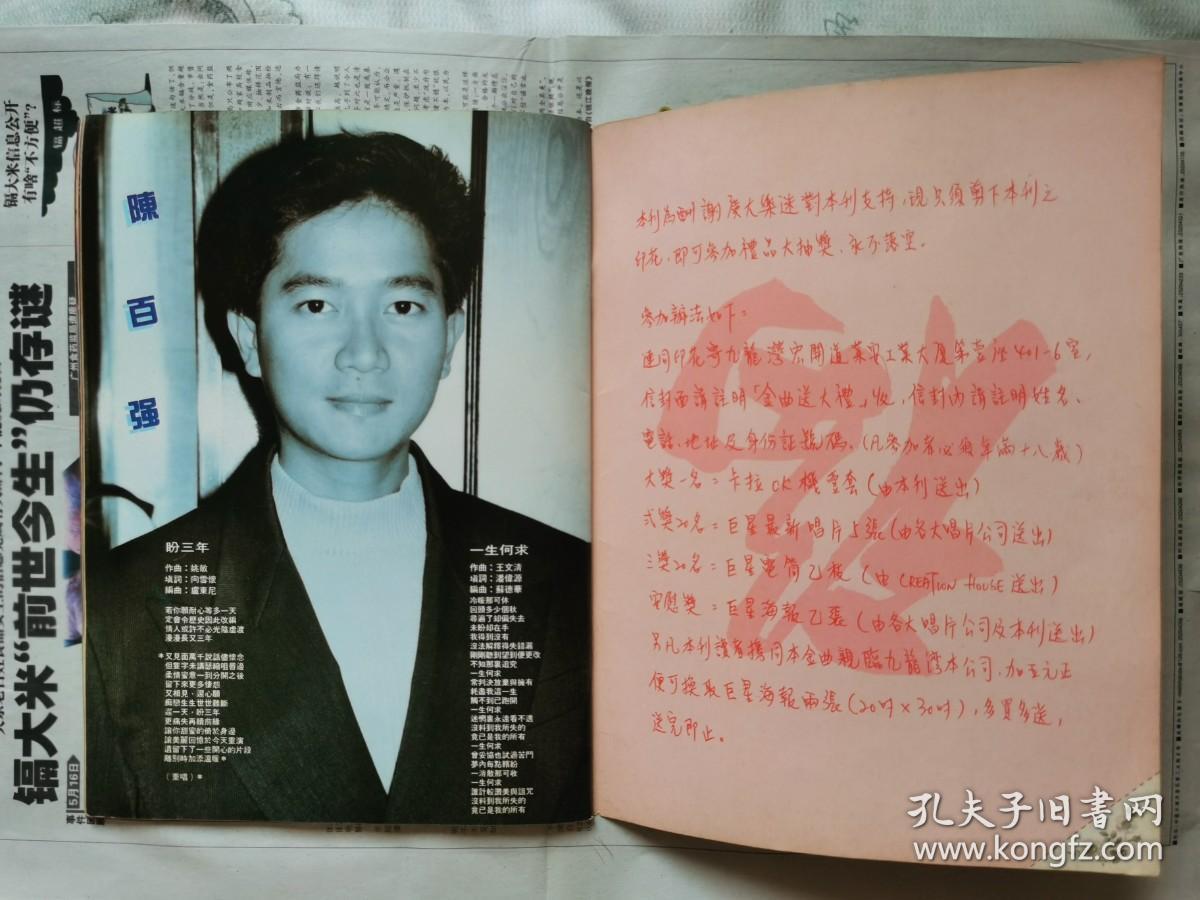 陳百强
盼三年
作曲：姚敏
填詞：向雪懷
編曲：盧東尼
若你願耐心等多一天
定會令歷史因此改編
情人或許不必光陰虛渡
漫漫長又三年
*又見面萬千說話儘懷念
但隻字未講認縮咀唇邊
柔情蜜意一到分開之後
留下來更多悽怨
又相見，還心願
痴戀生生世世難斷
說一天，盼三年
更痛失再續前緣
讓你甜蜜的倚於身邊
讓美麗回憶於今天重演
遺留下了一些開心的片段
離別時加添溫暖*
（重唱）*
一生何求
作曲：王文清
填詞：潘偉源
編曲：蘇德華
冷暖那可休
回頭多少個秋
尋遍了却偏失去
未盼却在手
我得到沒有
沒法解釋得失錯漏
剛剛聽到望到便更改
不知那裏追究
一生何求
常判決放棄與擁有
耗盡我這一生
觸不到已跑開
一生何求
迷惘裏永遠看不透
沒料到我所失的
竟已是我的所有
一生何求
曾妥協也試過苦鬥
夢內每點繽紛
一消散那可收
一生何求
誰計較讚美與詛咒
沒料到我所失的
竟已是我的所有
本刊為酬謝廣大樂迷對本刊支持，現只須剪下本刊之
印花，即可參加禮品大抽獎、永不落空。
參加辦法如下：
連同印花寄九龍灣宏開道業安工業大廈第壹座401-6室，
信封面請註明「金曲送大禮」收，信封內請註明姓名、
電話、地址及身份証號碼。（凡參加者必須年滿十八歲）
大獎一名＝卡拉OK機壹套（由本刊送出）
弍獎20名＝巨星最新唱片5張（由各大唱片公司送出）
三獎20名＝巨星電筒乙枝（由CREATION HOUSE送出）
安慰獎＝巨星海報乙張（由各大唱片公司及本刊送出）
另凡本刊讀者携同本金曲親臨九龍灣本公司，加五元正
便可換取巨星海報兩張（20吋×30吋），多買多送，
送完即止。
镉大米信息公开
有啥“不方便”？
镉超标
镉大米“前世今生”仍存谜
5月16日
孔夫子旧书网
www.kongfz.com